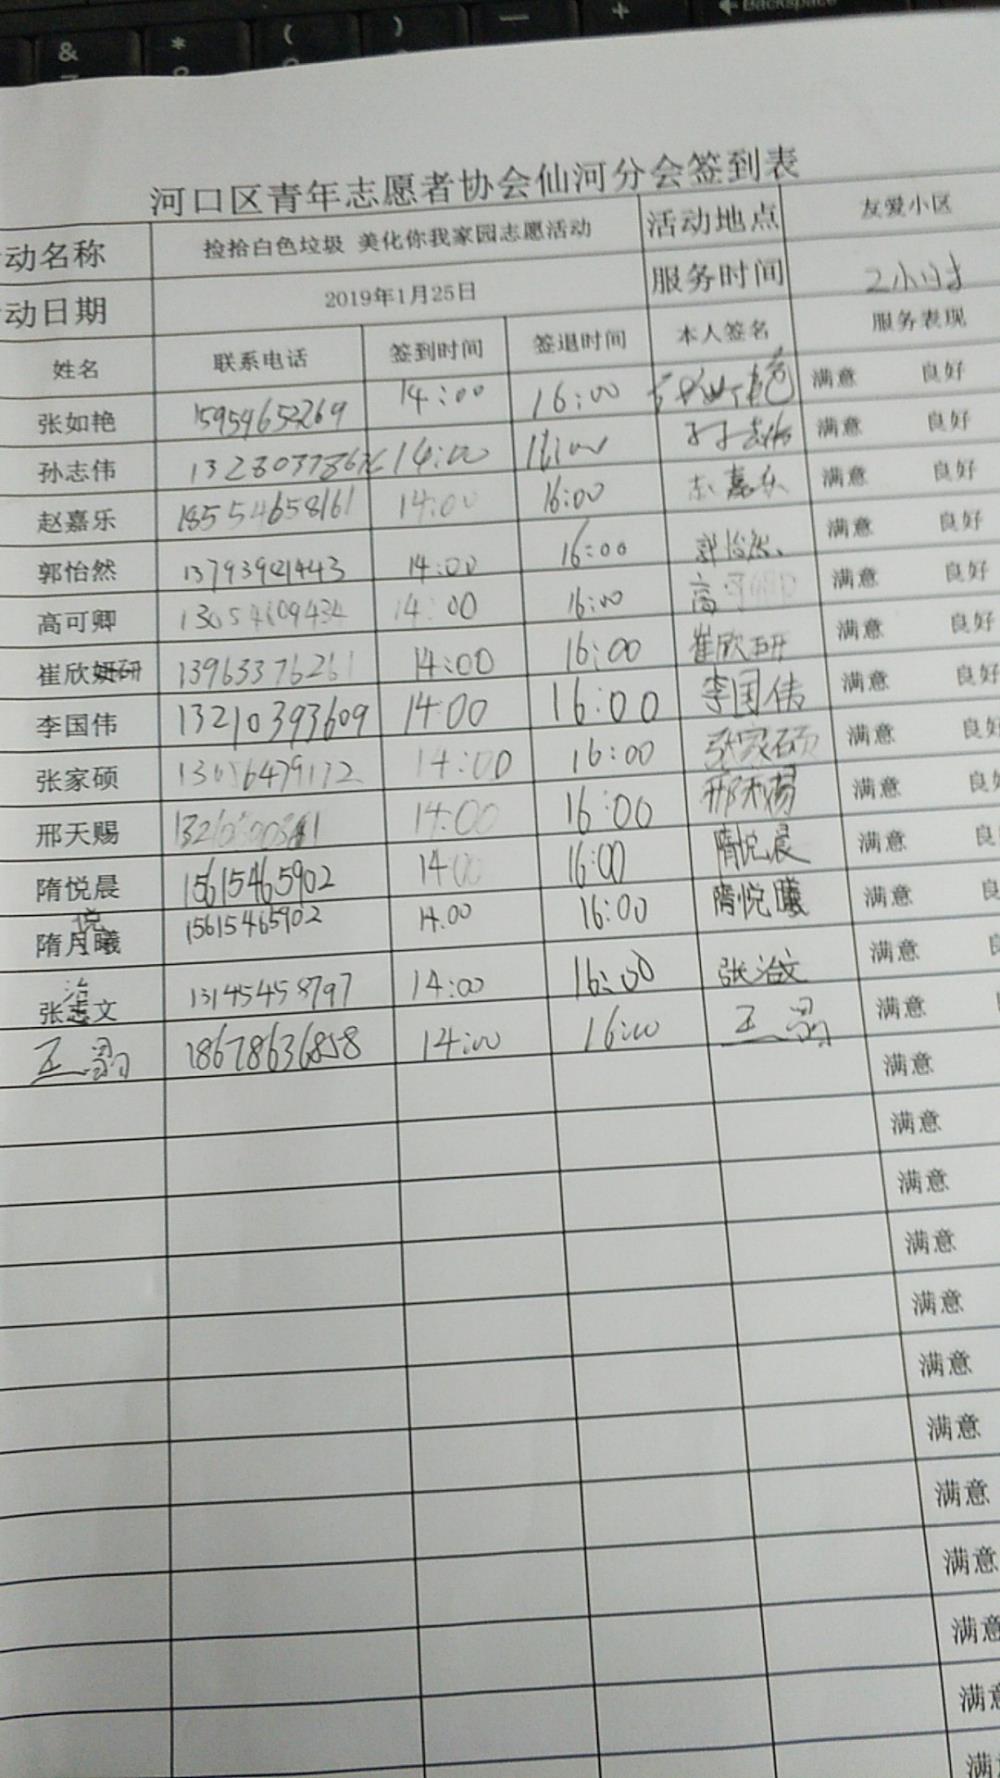 河口区青年志愿者协会仙河分会签到表
动名称 捡拾白色垃圾 美化你我家园志愿活动 活动地点 友爱小区
动日期 2019年1月25日 服务时间 2小时
姓名 联系电话 签到时间 签退时间 本人签名 服务表现
张如艳 14:00 16:00 满意 良好
孙志伟 14:00 16:00 满意 良好
赵嘉乐 18554658161 14:00 16:00 满意 良好
郭怡然 14:00 16:00 郭怡然 满意 良好
高可卿 14:00 16:00 高 满意 良好
崔欣研 13963376261 14:00 16:00 崔欣研 满意 良好
李国伟 13210393609 14:00 16:00 李国伟 满意 良好
张家硕 14:00 16:00 张家硕 满意 良好
邢天赐 14:00 16:00 邢天赐 满意 良好
隋悦晨 15615465902 14:00 16:00 隋悦晨 满意 良
隋悦曦 15615465902 14:00 16:00 隋悦曦 满意 良
张治文 13145458797 14:00 16:00 张治文 满意
18678636858 14:00 16:00 满意
满意
满意
满意
满意
满意
满意
满意
满意
满意
满意
满意
满